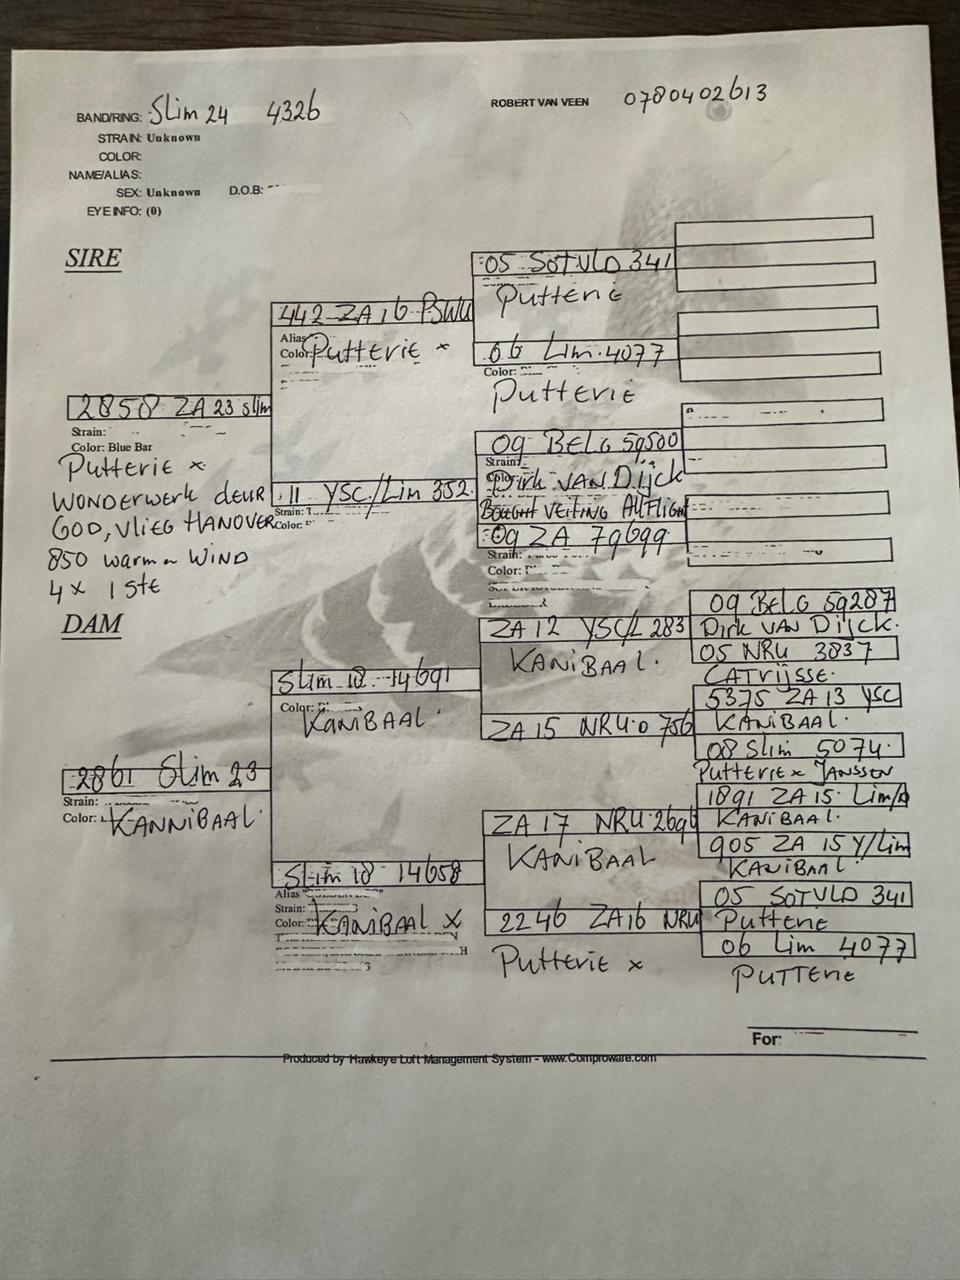 BAND/RING: Slim 24 4326
ROBERT VAN VEEN 0780402613
STRAIN: Unknown
COLOR:
NAME/ALIAS:
SEX: Unknown D.O.B:
EYE INFO: (0)
SIRE
05 SOTVLD 341
Putterie
442 ZA 16 PSWU
Alias
Color: Putterie x
06 Lim 4077
Color:
Putterie
2858 ZA 23 slim
Strain:
Color: Blue Bar
Putterie x
WONDERWERK deur
GOD, VLIEG HANOVER
850 warm WIND
4x 1 Ste
09 BELG 59500
Strain:
Dirk VAN Dijck
11 YSC/Lim 352
Strain:
Color:
09 ZA 79699
Strain:
Color:
DAM
09 BELG 59287
Dirk VAN Dijck.
ZA 12 YSC/L 283
KANiBAAL.
05 NRU 3837
CATrijSSE.
Slim 18 14691
Color:
KANiBAAL.
5375 ZA 13 YSC
KANiBAAL.
ZA 15 NRU 0 756
08 Slim 5074.
Putterie x JANSSEN
2861 Slim 23
Strain:
Color: KANNiBAAL.
1891 ZA 15 Lim/D
KANiBAAL.
ZA 17 NRU 2696
KANiBAAL
905 ZA 15 Y/Lim
KANiBAAL
Slim 18 14658
Alias
Strain:
Color: KANiBAAL X
05 SOTVLD 341
Putterie
2246 ZA16 NRU
Putterie x
06 Lim 4077
PUTTErie
For:
Produced by Hawkeye Loft Management System - www.Comproware.com